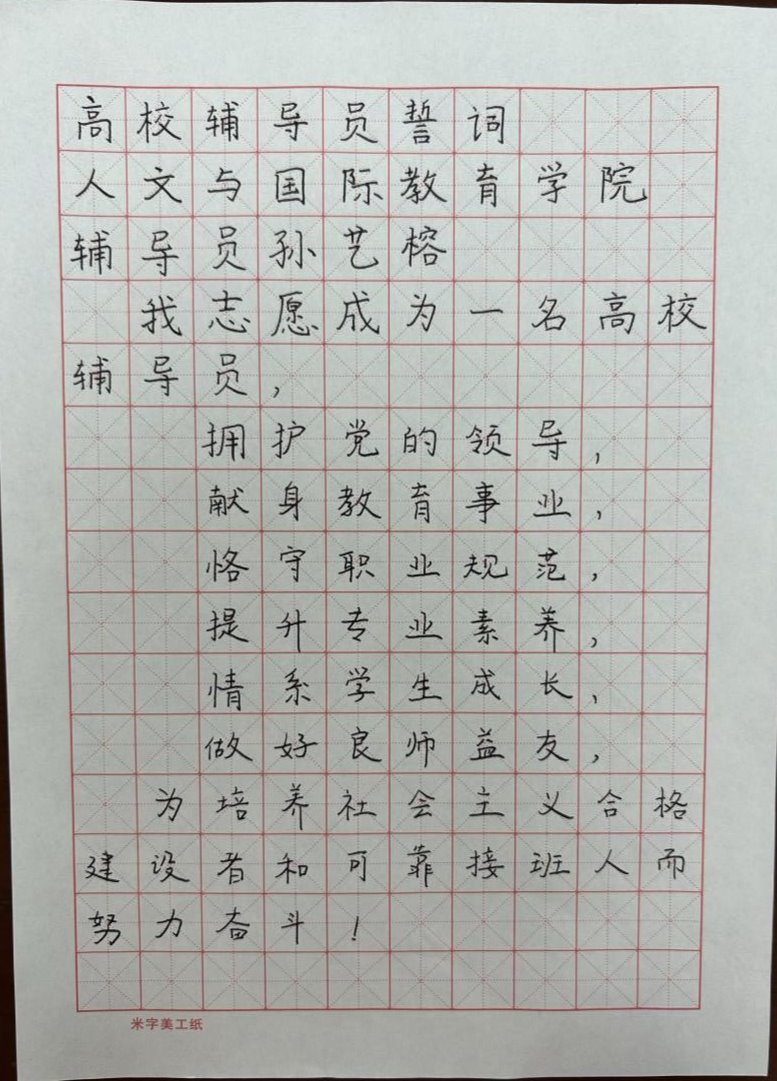 高校辅导员誓词
人文与国际教育学院
辅导员孙艺榕
我志愿成为一名高校
辅导员，
拥护党的领导，
献身教育事业，
恪守职业规范，
提升专业素养，
情系学生成长，
做好良师益友，
为培养社会主义合格
建设者和可靠接班人而
努力奋斗！
米字美工纸